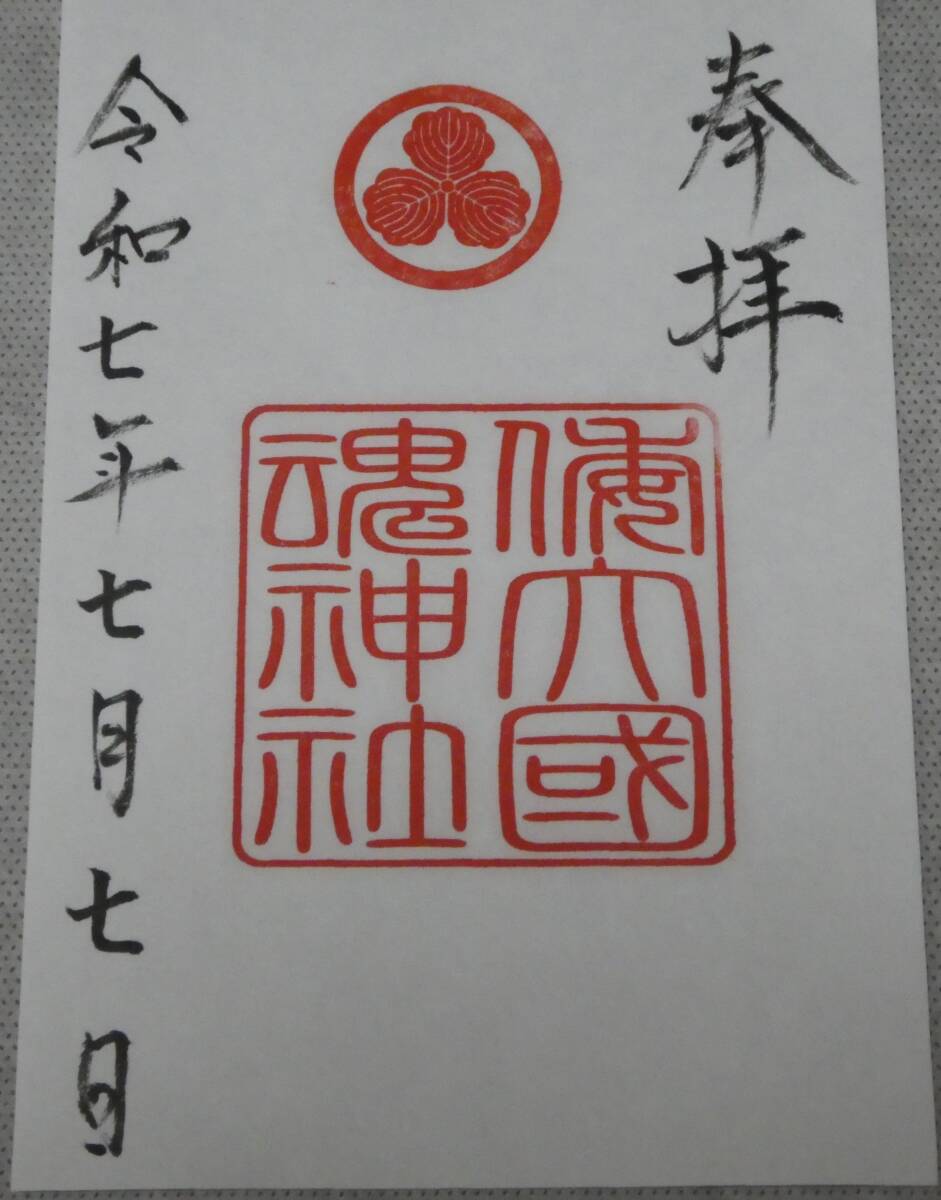 奉拝
倭大國
魂神社
令和七年七月七日